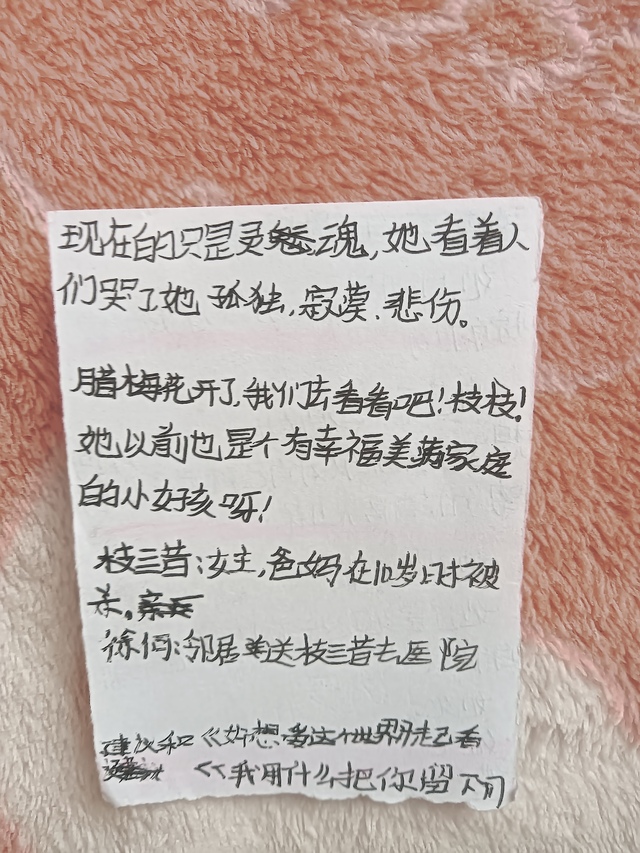 现在的只是灵魂,她看着人
们哭了她孤独,寂漠、悲伤。
腊梅花开了,我们去看看吧!枝枝!
她以前也是个有幸福美满家庭
的小女孩呀!
枝三昔:女主,爸妈在10岁时被
杀。
徐何:邻居 送枝三昔去医院
建议和《好想爱这个世界 起看
《我用什么把你留